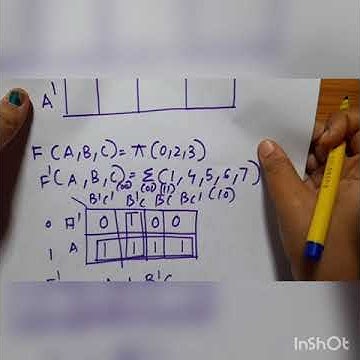 A'
F (A,B,C) = π (0,2,3)
F' (A,B,C) = Σ (1,4,5,6,7)
(00) (01) (11) (10)
B'C' B'C BC BC'
0 A' 0 1 0 0
1 A 1 1 1 1
InShOt